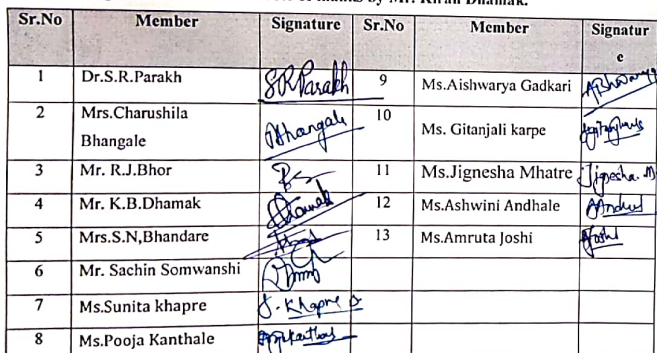 by Mr. Kiran Dhamak.
Sr.No Member Signature Sr.No Member Signatur
e
1 Dr.S.R.Parakh SRParakh 9 Ms.Aishwarya Gadkari
2 Mrs.Charushila Bhangale Bhangale 10 Ms. Gitanjali karpe
3 Mr. R.J.Bhor 11 Ms.Jignesha Mhatre Jignesha. M
4 Mr. K.B.Dhamak Dhamak 12 Ms.Ashwini Andhale
5 Mrs.S.N,Bhandare 13 Ms.Amruta Joshi Joshi
6 Mr. Sachin Somwanshi
7 Ms.Sunita khapre S. Khapre
8 Ms.Pooja Kanthale